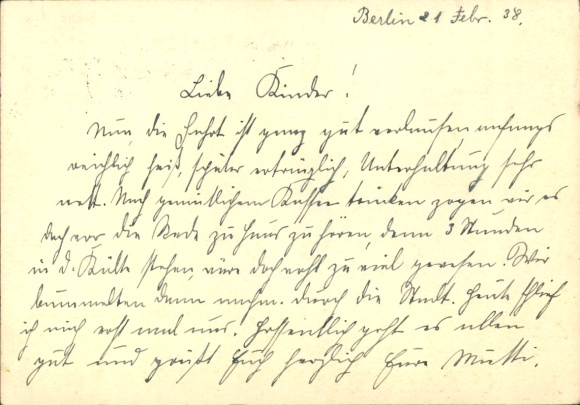 Berlin 21 Febr. 38.
Liebe Kinder!
Nun, die Fahrt ist ganz gut verlaufen, anfangs
reichlich heiß, später erträglich, Unterhaltung sehr
nett. Nach gemütlichem Kaffee trinken zogen wir es
doch vor, die Rede zu Haus zu hören, denn 3 Stunden
in d. Kälte stehen, wäre doch wohl zu viel gewesen. Wir
bummelten dann nachm. durch die Stadt. Heute schlief
ich mich erst mal aus. Hoffentlich geht es allen
gut und grüßt Euch herzlich Eure Mutti.